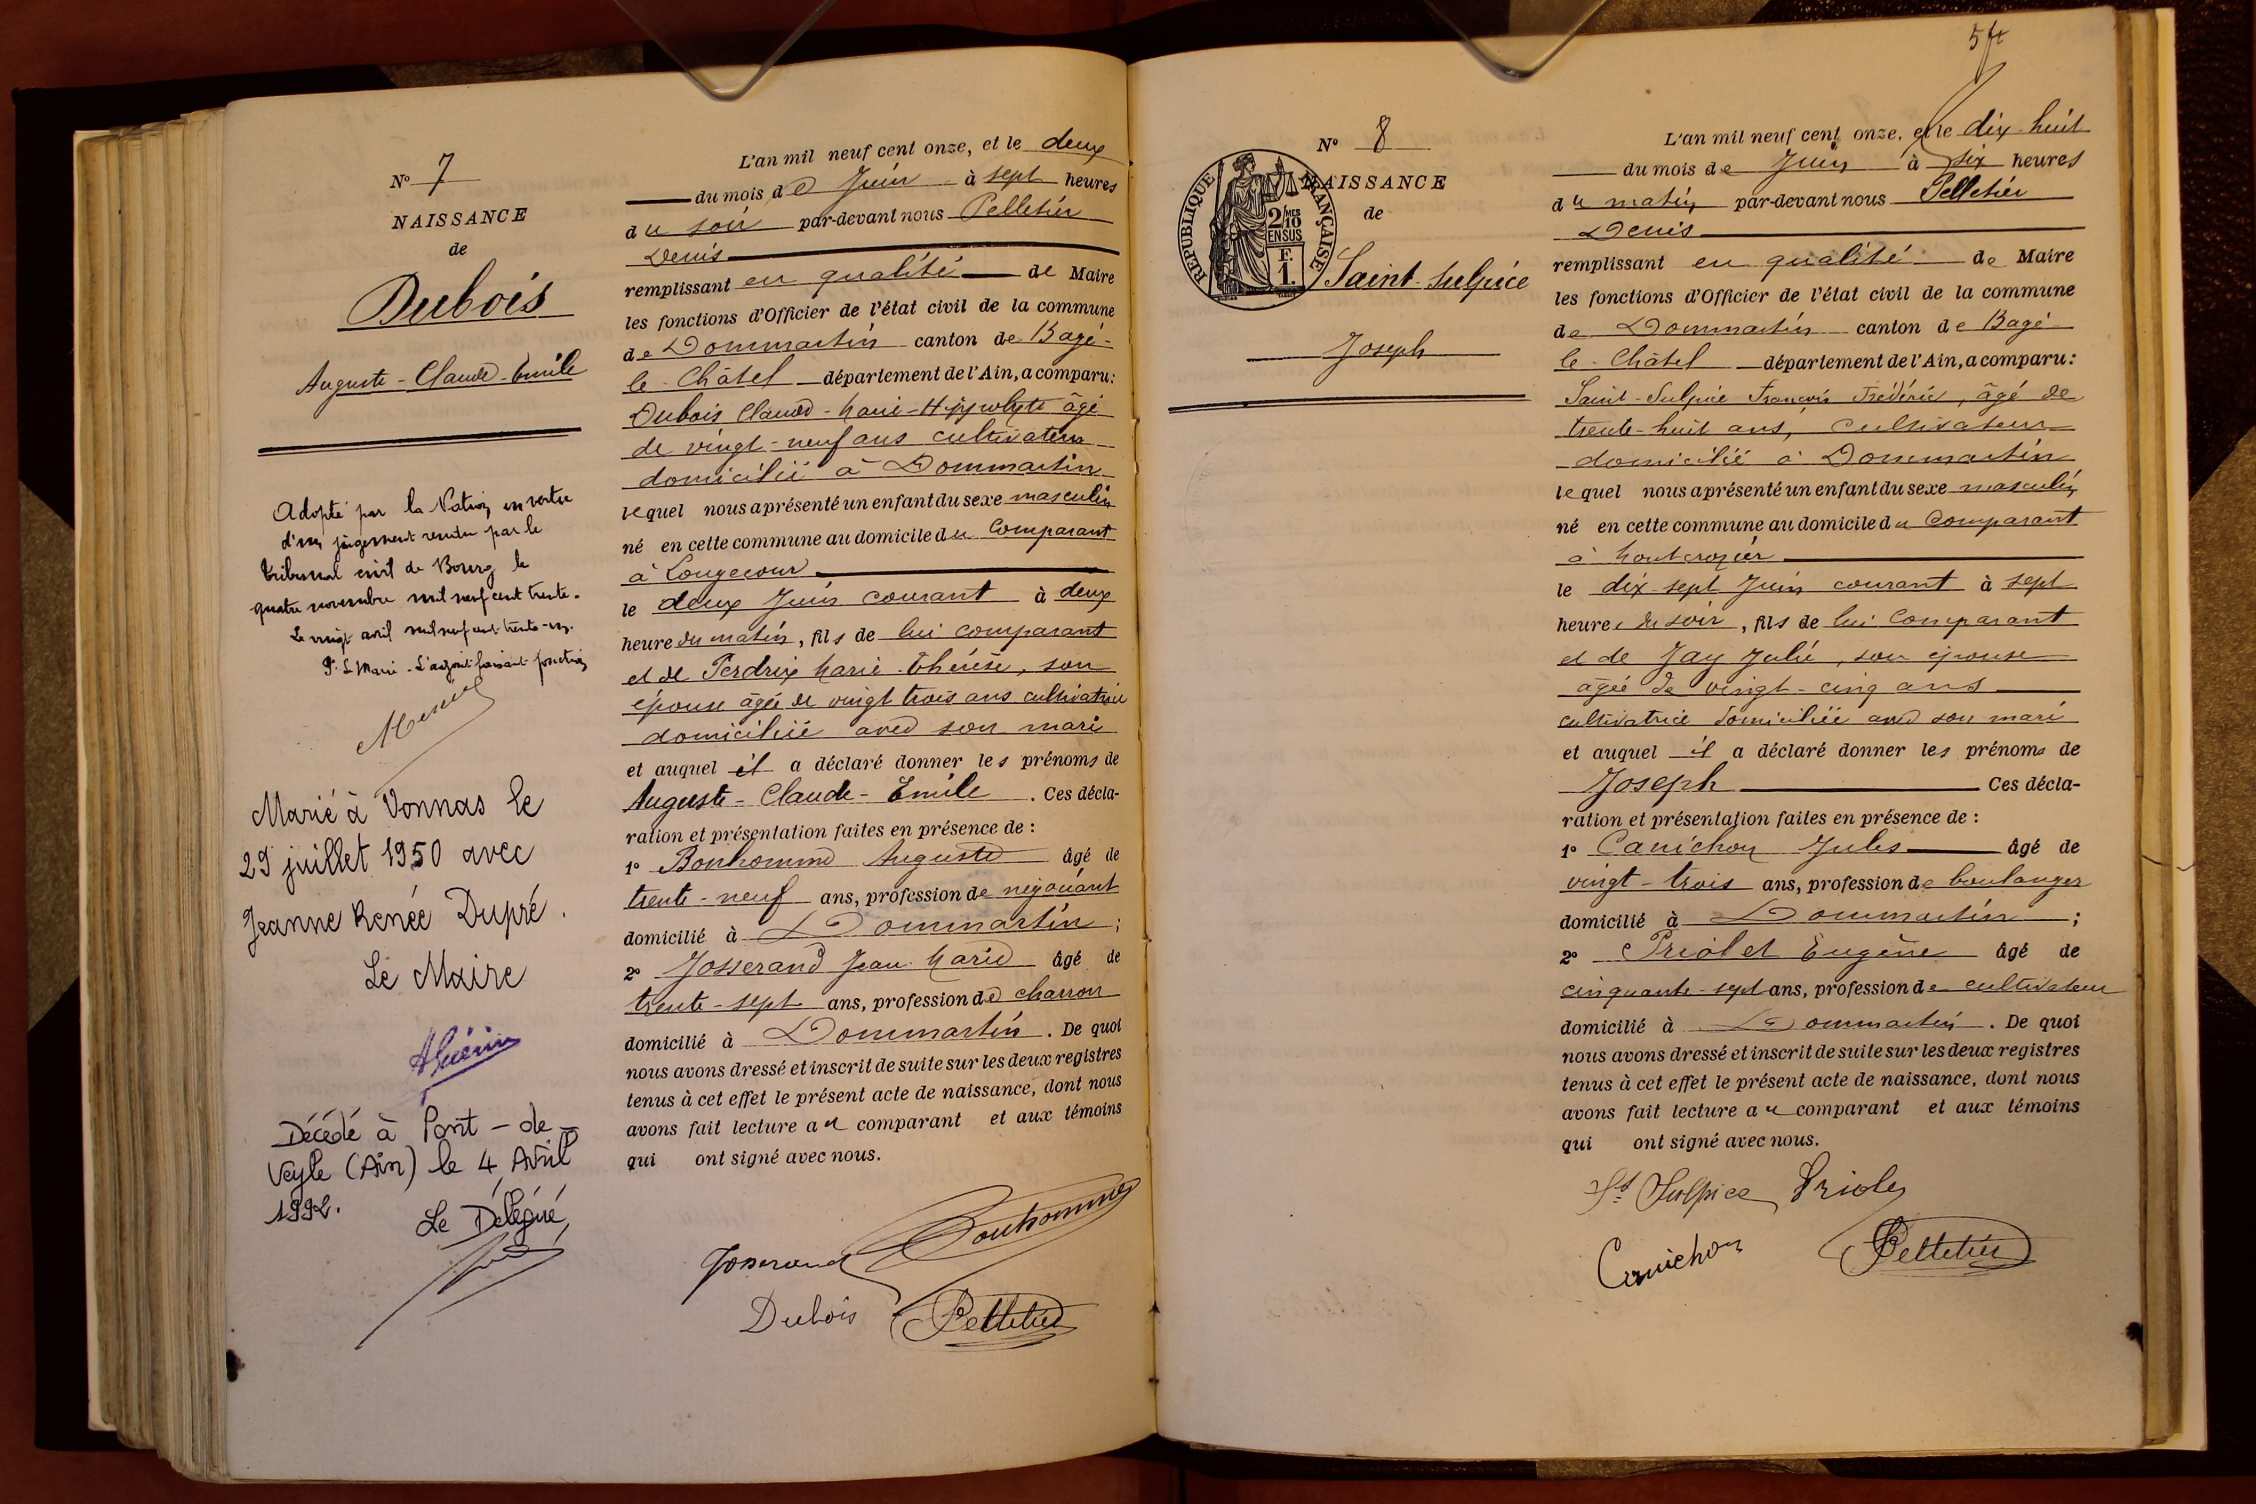 N° 7
NAISSANCE
de
Dubois
Auguste - Claude - Emile
Adopté par la Nation en vertu
d'un jugement rendu par le
tribunal civil de Bourg le
quatre novembre mil neuf cent trente.
Le vingt avril mil neuf cent trente-un.
Pr Le Maire - L'adjoint faisant fonction
Marié à Vonnas le
29 juillet 1950 avec
Jeanne Renée Dupré.
Le Maire
AGuérin
Décédé à Pont-de-
Veyle (Ain) le 4 Avril
1992.
Le Délégué,
L'an mil neuf cent onze, et le deux
du mois de Juin à sept heures
du soir par-devant nous Pelletier
Denis
remplissant en qualité de Maire
les fonctions d'Officier de l'état civil de la commune
de Dommartin canton de Bagé-
le-Châtel département de l'Ain, a comparu:
Dubois Claude-Marie-Hypolyte âgé
de vingt-neuf ans cultivateur
domicilié à Dommartin
lequel nous a présenté un enfant du sexe masculin
né en cette commune au domicile du Comparant
à Longecour
le deux Juin courant à deux
heure du matin, fils de lui comparant
et de Perdrix Marie-Thérèse, son
épouse âgée de vingt trois ans cultivatrice
domiciliée avec son mari
et auquel il a déclaré donner les prénoms de
Auguste-Claude-Emile. Ces décla-
ration et présentation faites en présence de :
1° Bonhomme Auguste âgé de
trente-neuf ans, profession de négociant
domicilié à Dommartin ;
2° Josserand Jean Marie âgé de
trente-sept ans, profession de charron
domicilié à Dommartin. De quoi
nous avons dressé et inscrit de suite sur les deux registres
tenus à cet effet le présent acte de naissance, dont nous
avons fait lecture au comparant et aux témoins
qui ont signé avec nous.
Josserand Bonhomme
Dubois Pelletier
N° 8
NAISSANCE
de
RÉPUBLIQUE FRANÇAISE
2/10 MES
EN SUS
F.
1.
Saint-Sulpice
Joseph
L'an mil neuf cent onze, et le dix-huit
du mois de Juin à six heures
du matin par-devant nous Pelletier
Denis
remplissant en qualité de Maire
les fonctions d'Officier de l'état civil de la commune
de Dommartin canton de Bagé-
le-Châtel département de l'Ain, a comparu:
Saint-Sulpice François Frédéric, âgé de
trente-huit ans, Cultivateur
domicilié à Dommartin
lequel nous a présenté un enfant du sexe masculin
né en cette commune au domicile du Comparant
à Montcrozier
le dix sept Juin courant à sept
heures du soir, fils de lui Comparant
et de Jay Julie, son épouse
âgée de vingt-cinq ans
cultivatrice domiciliée avec son mari
et auquel il a déclaré donner les prénoms de
Joseph Ces décla-
ration et présentation faites en présence de :
1° Canichon Jules âgé de
vingt-trois ans, profession de boulanger
domicilié à Dommartin ;
2° Priolet Eugène âgé de
cinquante-sept ans, profession de cultivateur
domicilié à Dommartin. De quoi
nous avons dressé et inscrit de suite sur les deux registres
tenus à cet effet le présent acte de naissance, dont nous
avons fait lecture au comparant et aux témoins
qui ont signé avec nous.
St Sulpice
Canichon Pelletier